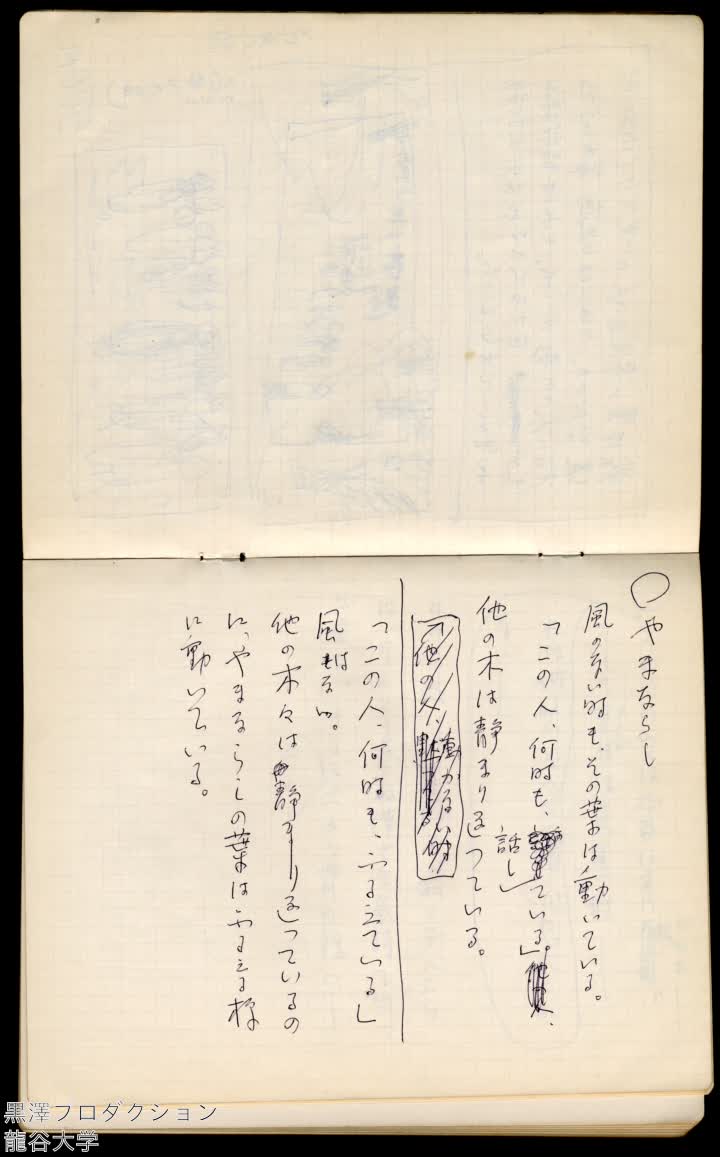 ○やまならし
風のない時も、その葉は動いている。
「この人、何時も、話している」
他の木は静まり返っている。
他の人、動かない時
「この人、何時も、ふるえている」
風はない。
他の木々は静まり返っているの
に、やまならしの葉はふるえる様
に動いている。
黒澤プロダクション
龍谷大学